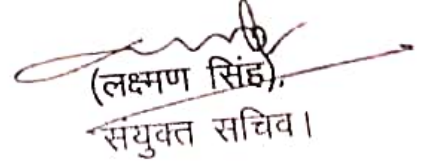 (लक्ष्मण सिंह),
संयुक्त सचिव।